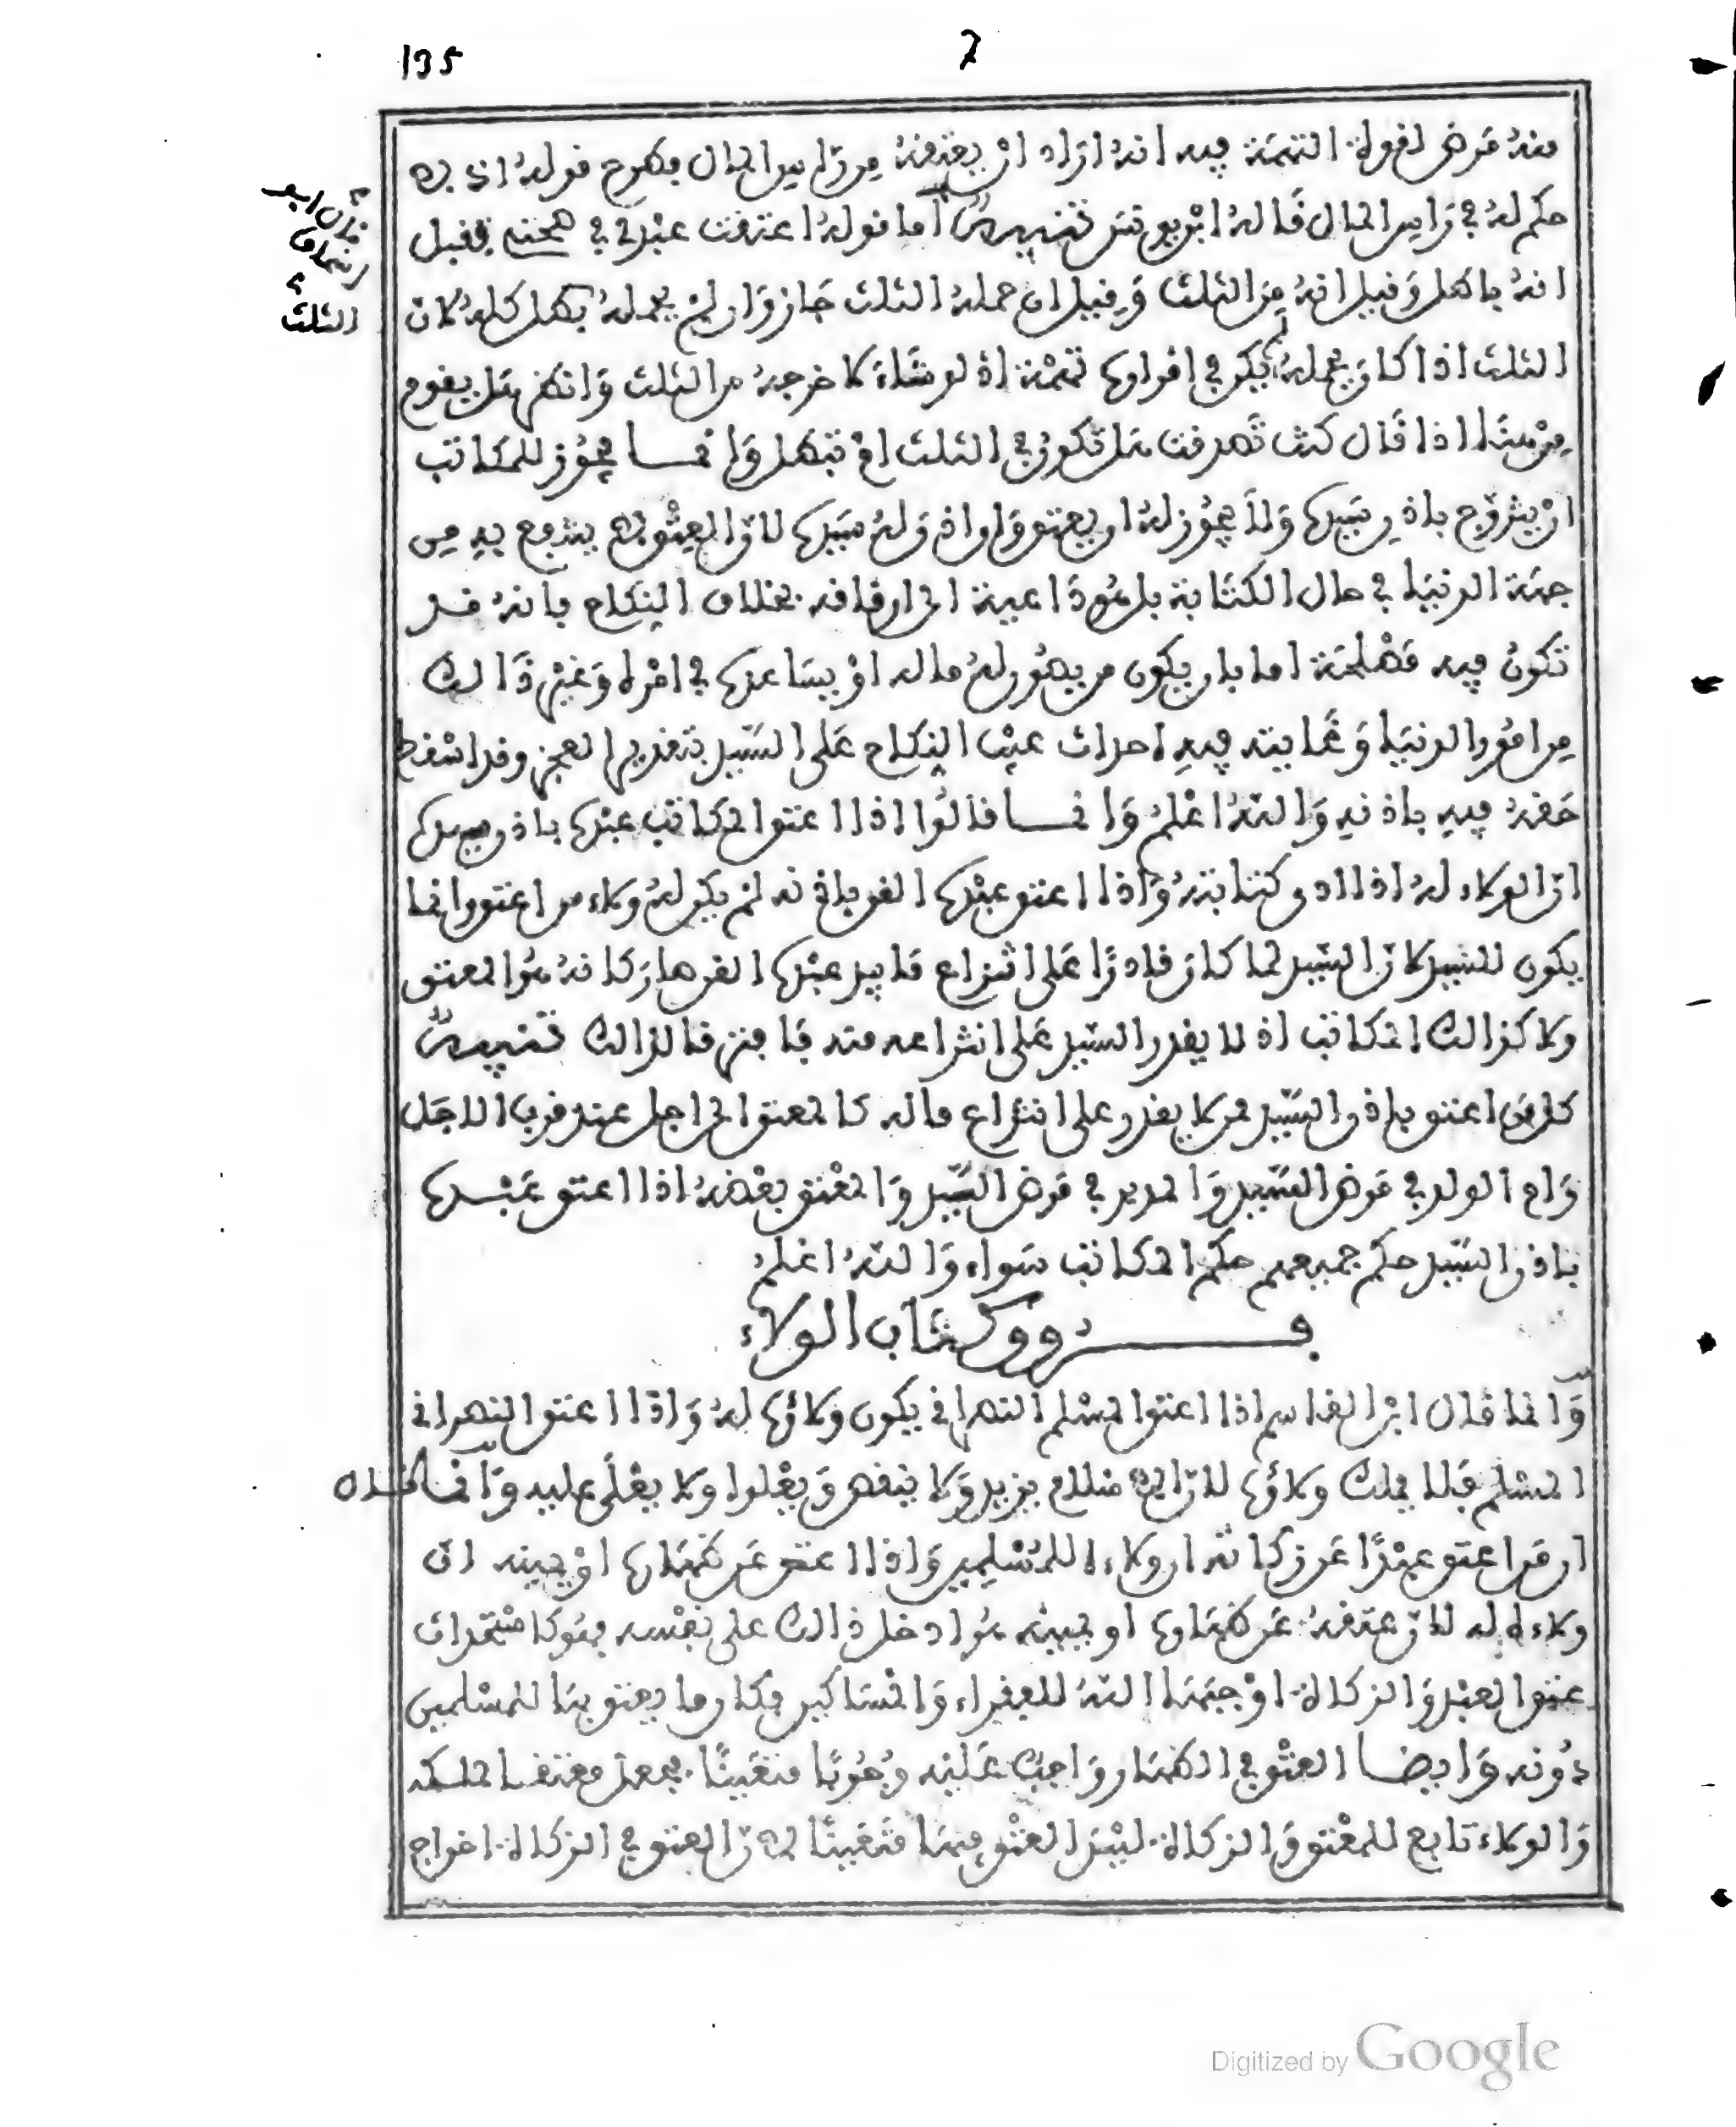 135
7
منه مرض لقوة التهمة فيه انه اراد ان يعتقه من راس المال فطرح قوله الذي
حكم له في راس المال قاله ابن يونس تنبيه اما قوله اعتقت عبدي في صحتي فقيل
انه باطل وقيل انه من الثلث وقيل ان حمله الثلث جاز وان لم يحمله بطل كله لان
الثلث اذا كان يحمله لم يكن في اقراره تهمة اذ لو شاء لاخرجه من الثلث وانظر هل يقوم
من هنا اذا قال كنت تصدقت هل تكون في الثلث او تبطل وانما يجوز للمكاتب
ان يتزوج باذن سيده ولا يجوز له ان يعتق ولو اذن له سيده لان العتق لا ينتفع به من
جهة الدنيا في حال الكتابة بل هو داعية الى ارقاقه بخلاف النكاح فانه قد
تكون فيه مصلحة اما بان يكون من يصون له ماله او يساعده في امره وغير ذالك
من امور الدنيا وغايته فيه احداث عيب النكاح على السيد بتقدير العجز وقد اسقط
حقه فيه باذنه والله اعلم وانما قالوا اذا اعتق المكاتب عبده باذن سيده
ان الولاء له اذا ادى كتابته واذا اعتق عبده القن باذنه لم يكن له ولاء من اعتق وانما
يكون للسيد لان السيد لما كان قادرا على انتزاع ما بيد عبده القن صار كانه هو المعتق
ولا كذالك المكاتب اذ لا يقدر السيد على انتزاعه منه فافترقا لذالك تنبيه
كل من اعتق باذن السيد ممن لا يقدر على انتزاع ماله كالمعتق الى اجل عند قرب الاجل
وام الولد في مرض السيد والمدبر في مرض السيد والمعتق بعضه اذا اعتق عبده
باذن السيد حكم جميعهم حكم المكاتب سواء والله اعلم
فروق كتاب الولاء
وانما قال ابن القاسم اذا اعتق المسلم النصراني يكون ولاؤه له واذا اعتق النصراني
المسلم فلا يملك ولاؤه لان الاسلام يزيد ولا ينقص ويعلوا ولا يعلى عليه وانما قال
ان من اعتق عبدا عن زكاته ان ولاءه للمسلمين واذا اعتق عن ظهاره او يمينه ان
ولاءه له لان عتقه عن ظهاره او يمينه هو ادخل ذالك على نفسه فهو كمبتدإ
عتق العبد والزكاة اوجبها الله للفقراء والمساكين فكان ما يعتق بها للمسلمين
دونه وايضا العتق في الظهار واجب عليه وجوبا متعينا فجعل معتقا لملكه
والولاء تابع للمعتق والزكاة ليس العتق فيها متعينا لان العتق في الزكاة اخراج
الثلث
Digitized by Google